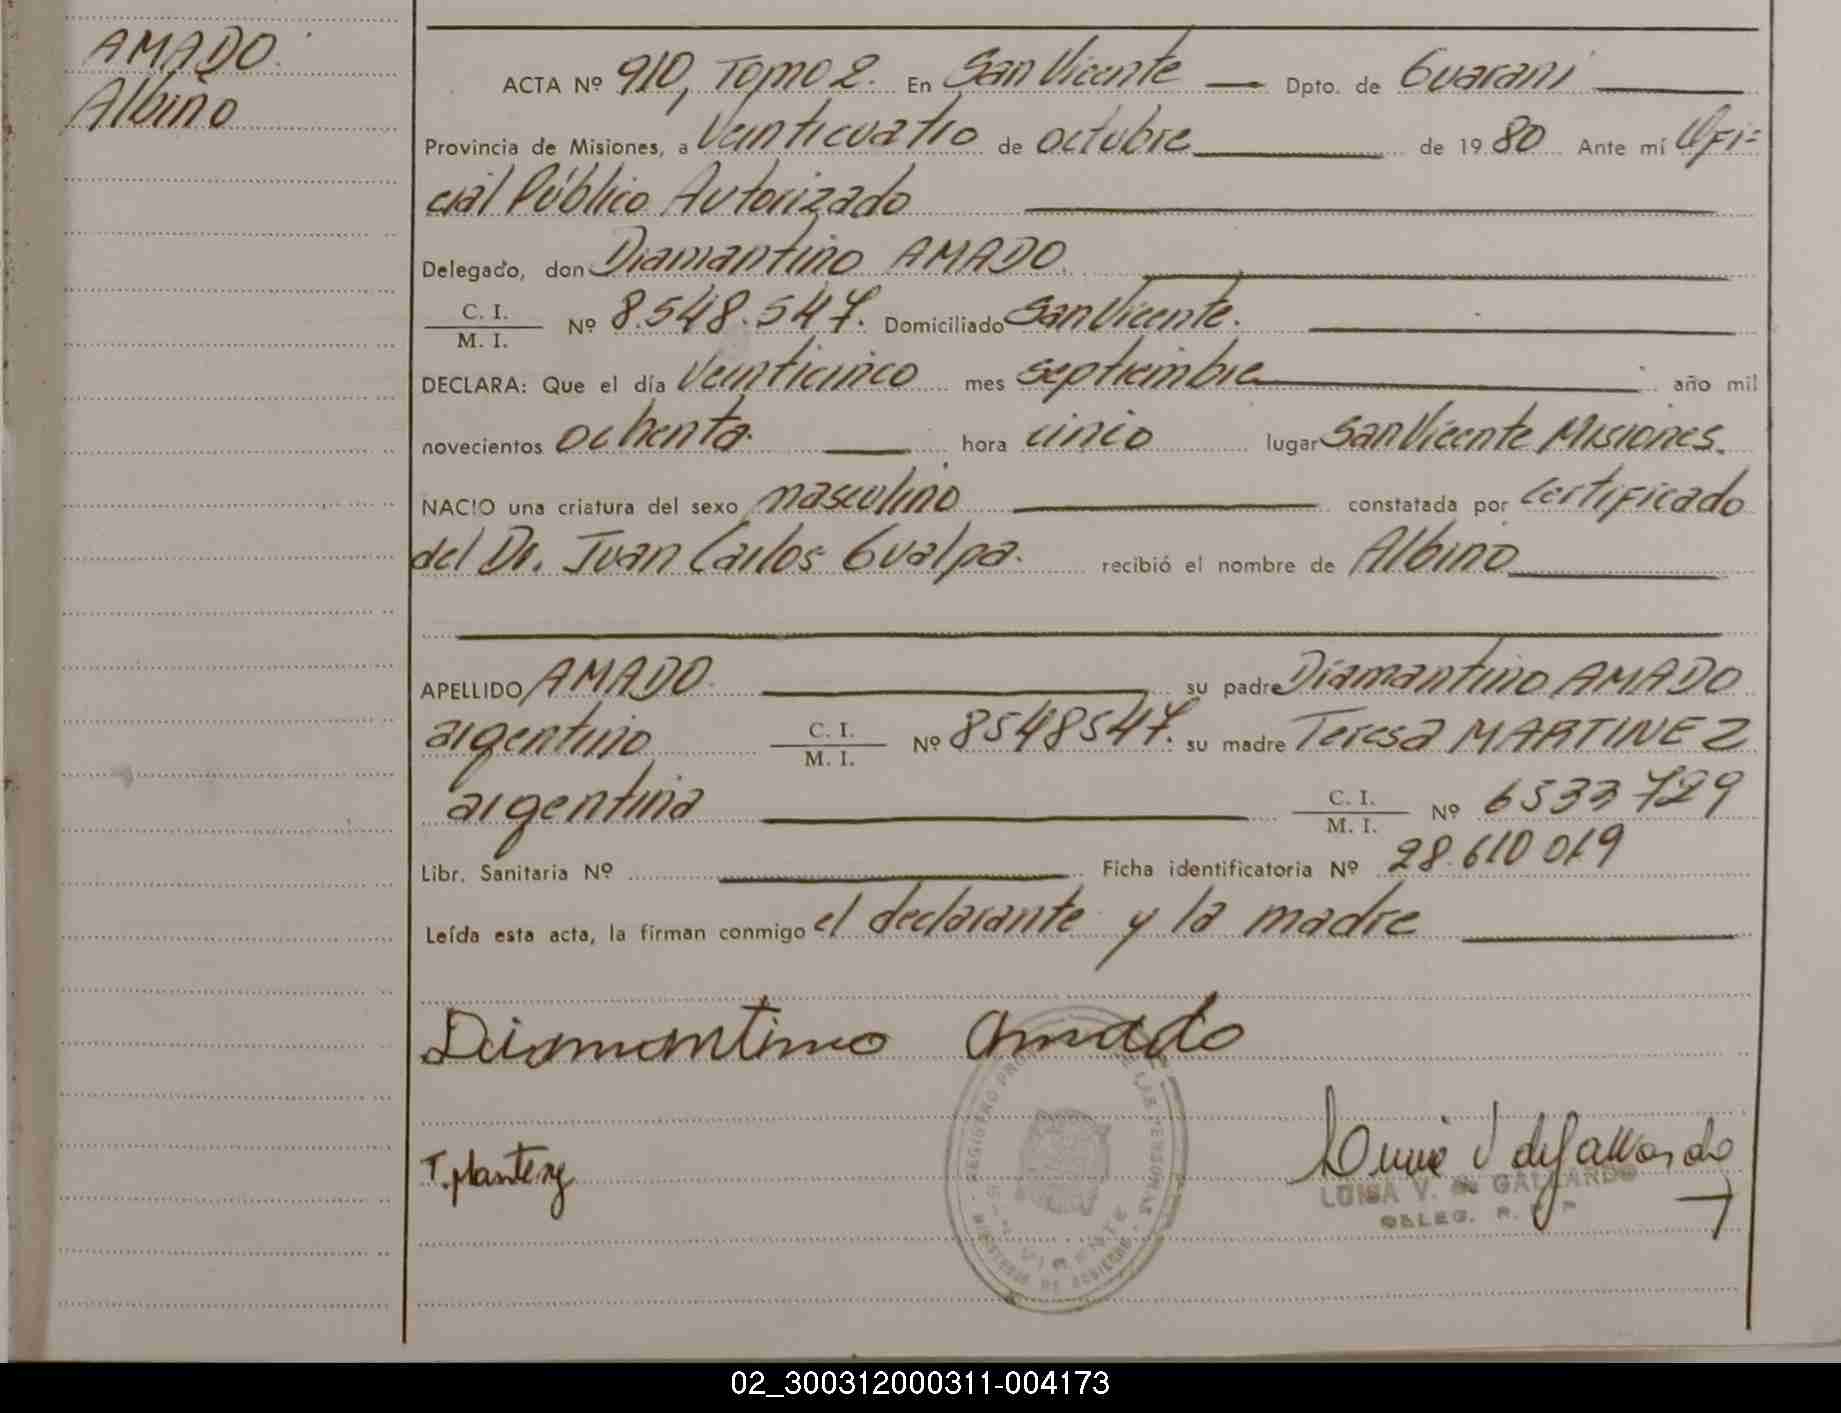 AMADO.
Albino
ACTA Nº 910, Tomo 2. En San Vicente Dpto. de Guarani
Provincia de Misiones, a Veinticuatro de octubre de 19 80 Ante mí Ofi=
cial Público Autorizado
Delegado, don Diamantino AMADO.
C. I.
M. I. Nº 8.548.547. Domiciliado San Vicente.
DECLARA: Que el día Veinticinco mes septiembre año mil
novecientos ochenta. hora cinco lugar San Vicente Misiones.
NACIO una criatura del sexo masculino constatada por certificado
del Dr. Juan Carlos Gualpa. recibió el nombre de Albino
APELLIDO AMADO. su padre Diamantino AMADO
argentino C. I.
M. I. Nº 8548547. su madre Teresa MARTINEZ
argentina C. I.
M. I. Nº 6533729
Libr. Sanitaria Nº Ficha identificatoria Nº 28.610.019
Leída esta acta, la firman conmigo el declarante y la madre
Diamantino Amado
REGISTRO DE LAS PERSONAS
SAN VICENTE
MINISTERIO DE GOBIERNO
LUISA V. de GALLARDO
DELEG. R. P. P.
02_300312000311-004173